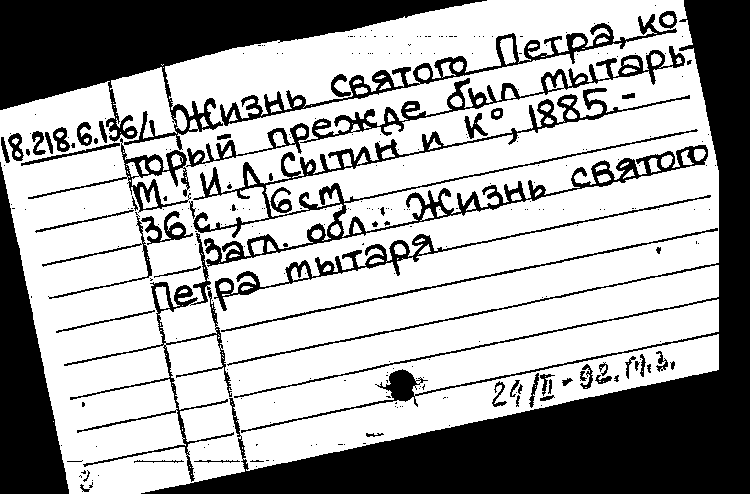 18.218.6.136/1 Жизнь святого Петра, ко-
торый прежде был мытарь.-
М.: И.Д.Сытин и К°, 1885.-
36 с.; 16 см.
Загл. обл.: Жизнь святого
Петра мытаря.
24/II-92. М.З.